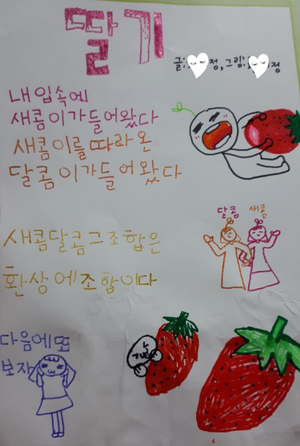 딸기
글: 정, 그림: 정
내 입속에
새콤이가 들어왔다
새콤이를 따라온
달콤이가 들어왔다
달콤 새콤
새콤달콤 그 조합은
환상에 조합이다
다음에 또
보자